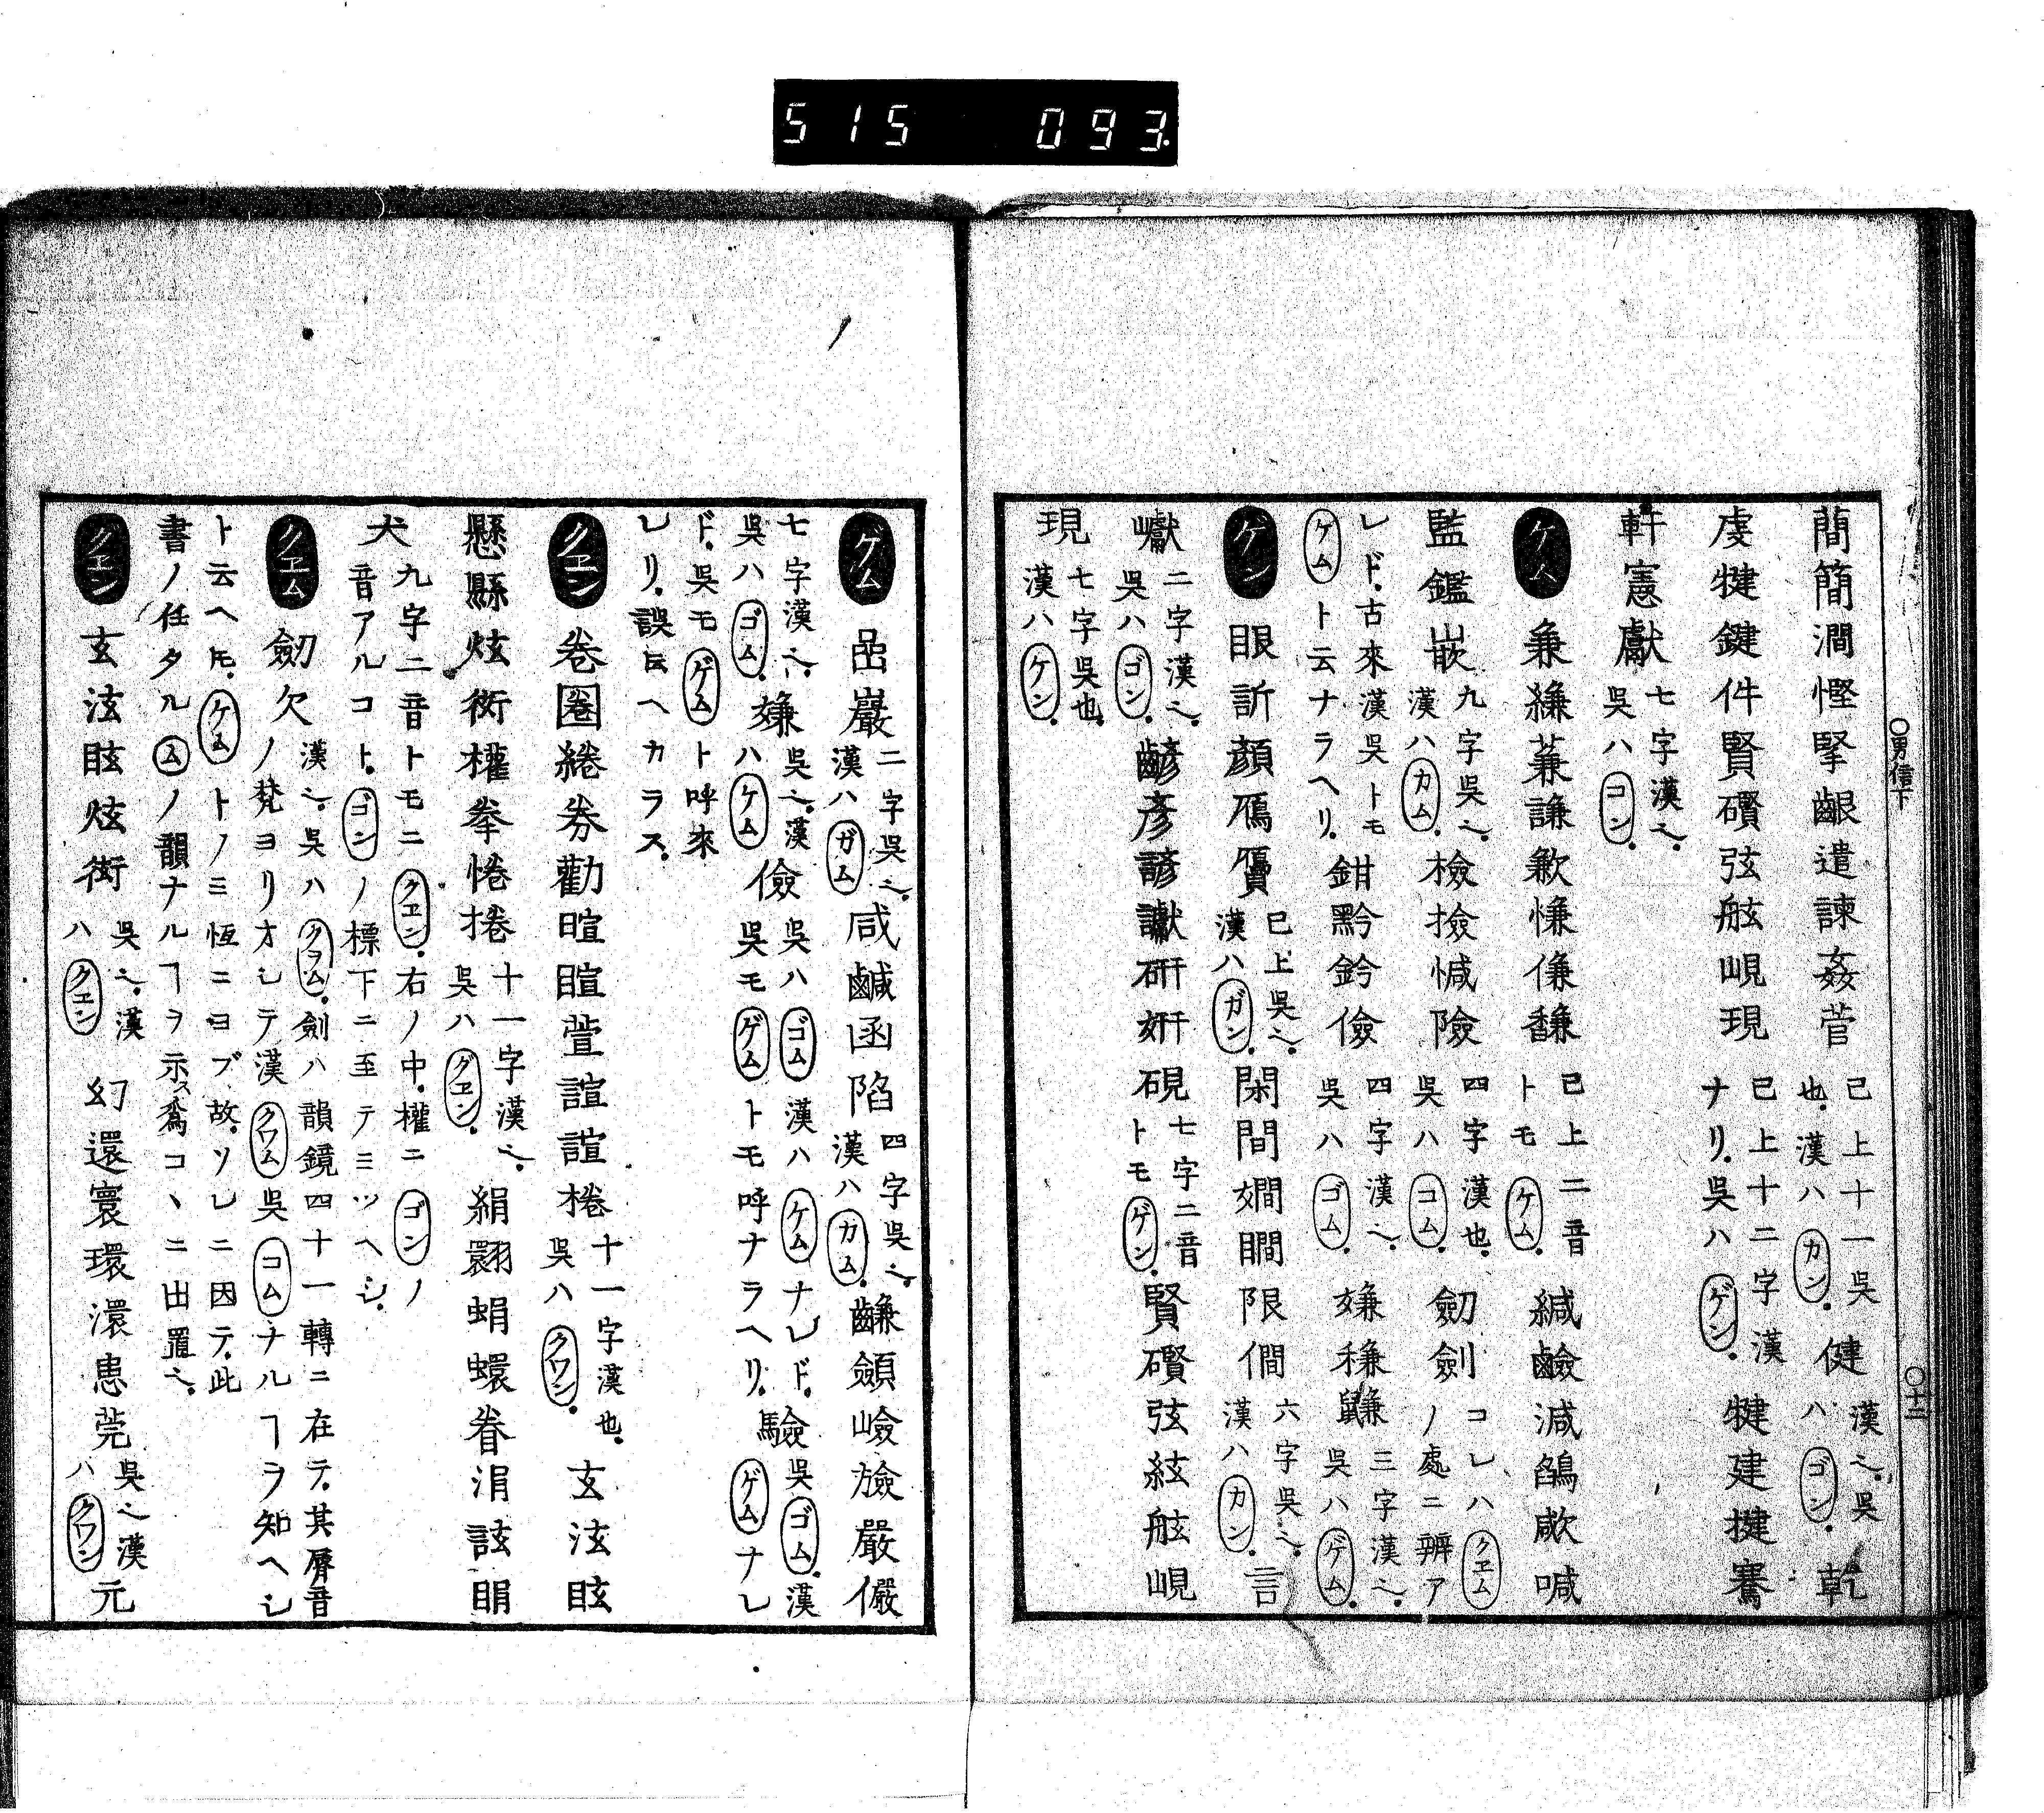 515 093
○男信下 ○十二
蕳簡澗慳掔齦遣諫姦菅 已上十一吳也。漢ハカン。 健 漢也。吳ハゴン。 乾
虔犍鍵件賢礥弦舷峴現 已上十二字漢ナリ。吳ハゲン。 犍建揵騫
軒憲獻 七字漢也。吳ハコン。
ケム 兼縑蒹謙歉慊傔馦 已上二音トモケム。 緘鹼減鵮欦喊
監鑑嵌 九字吳也。漢ハカム。 檢撿憾險 四字漢也。吳ハコム。 劒劍 コレハクヱムノ處ニ辨ア
レド。古來漢吳トモケムト云ナラヘリ。 鉗黔鈐儉 四字漢也。吳ハゴム。 嫌稴鼸 三字漢也。吳ハゲム。
ゲン 眼訢顏鴈贗 已上吳也。漢ハガン。 閑閒嫺瞯限僩 六字吳也。漢ハカン。 言
巘 二字漢也。吳ハゴン。 齴彥諺讞硏姸硯 七字二音トモゲン。 賢礥弦絃舷峴
現 七字吳也。漢ハケン。
ゲム 嵒巖 二字吳也。漢ハガム。 咸鹹函陷 四字吳也。漢ハカム。 鹻顩嶮譣嚴儼
七字漢也。吳ハゴム。 嫌 吳也。漢ハケム 儉 吳ハゴム漢ハケムナレド。吳モゲムトモ呼ナラヘリ。 驗 吳ゴム。漢ゲムナレ
ド。吳モゲムト呼來レリ。誤トモ云ヘカラス。
クヱン 卷圈綣券勸暄睻萱諠諼棬 十一字漢也。吳ハクワン。 玄泫眩
懸縣炫衒權拳惓捲 十一字漢也。吳ハグヱン。 絹翾蜎蠉眷涓該睊
犬 九字二音トモニクヱン。右ノ中。權ニゴンノ音アルコト。ゴンノ標下ニ至テミツヘシ。
クヱム 劒欠 漢也。吳ハクヲム。劍ハ韻鏡四十一轉ニ在テ。其脣音ノ梵ヨリオシテ漢クワム吳コムナルヿヲ知ヘシ
ト云ヘ𪜈。ケムトノミ恆ニヨブ故。ソレニ因テ。此書ノ任タルムノ韻ナルヿヲ示ス爲コヽニ出置也。
クヱン 玄泫眩炫衒 吳也。漢ハクヱン 幻還寰環澴患莞 吳也漢ハクワン 元